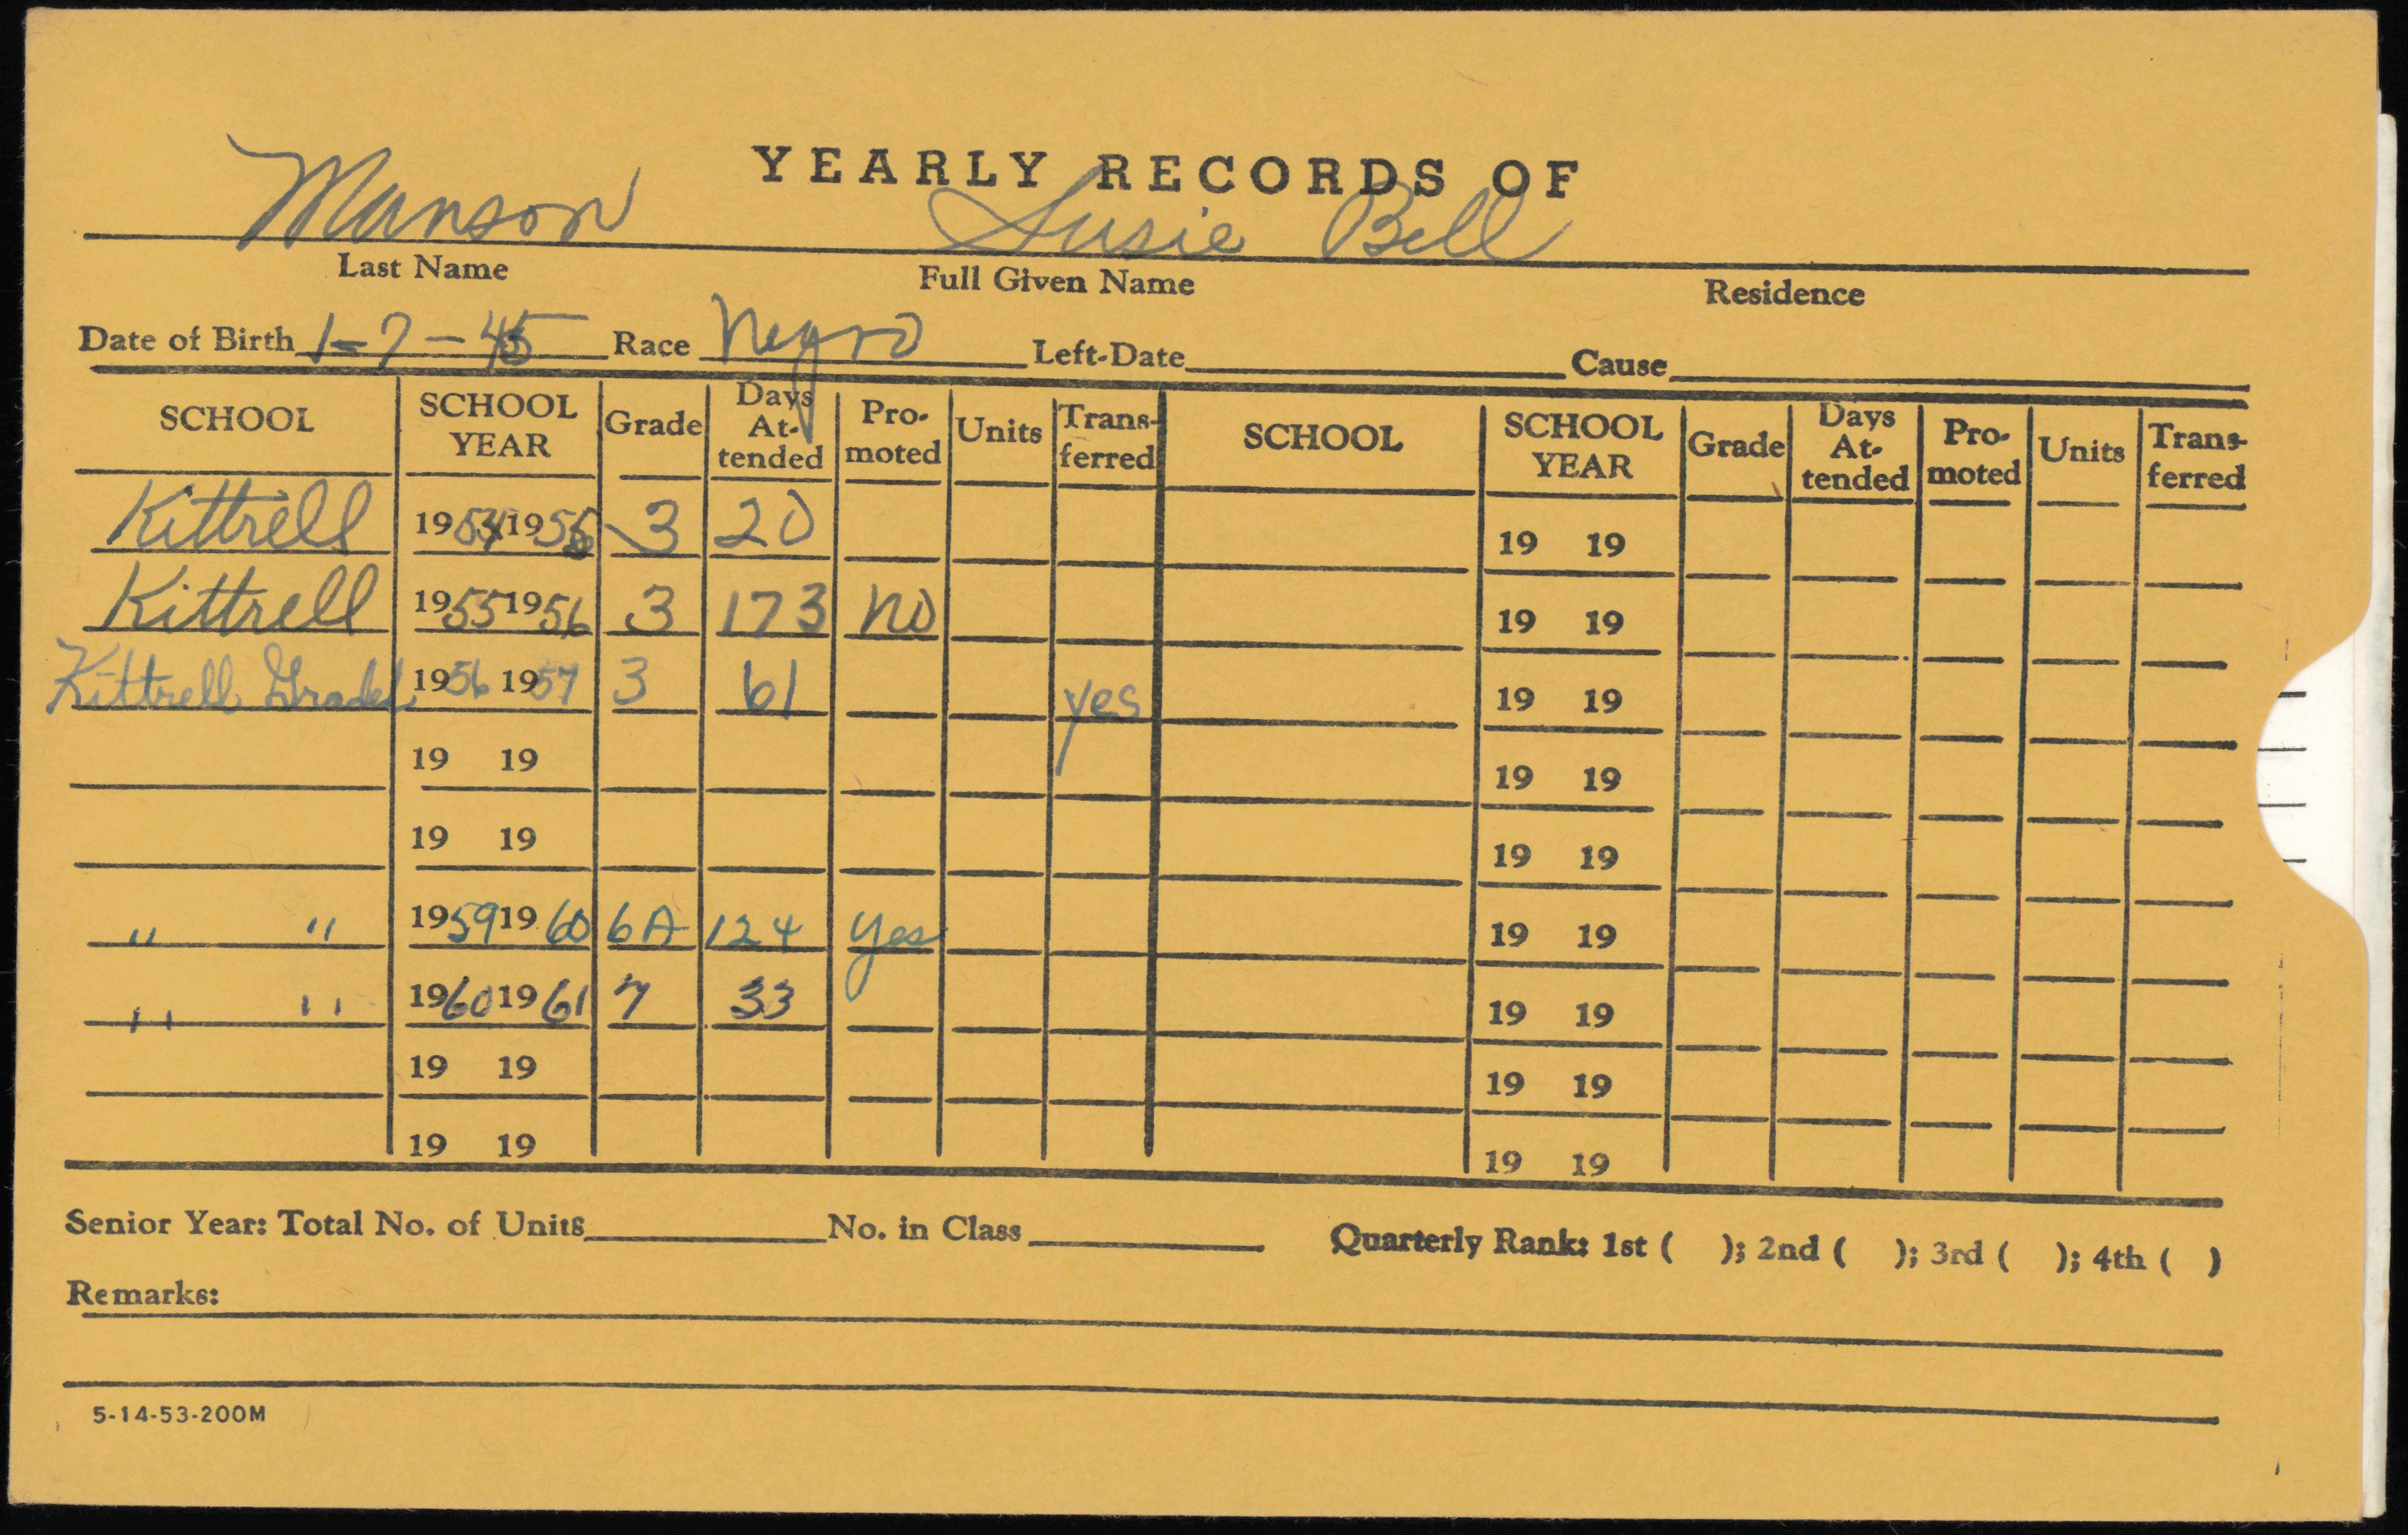 YEARLY RECORDS OF
Munson Susie Bell
Last Name Full Given Name Residence
Date of Birth 1-7-45 Race Negro Left-Date Cause
SCHOOL SCHOOL YEAR Grade Days At-tended Pro-moted Units Trans-ferred SCHOOL SCHOOL YEAR Grade Days At-tended Pro-moted Units Trans-ferred
Kittrell 1954 1955 3 20 19 19
Kittrell 1955 1956 3 173 no 19 19
Kittrell Graded 1956 1957 3 61 yes 19 19
19 19 19 19
19 19 19 19
" " 1959 1960 6A 124 yes 19 19
" " 1960 1961 7 33 19 19
19 19 19 19
19 19 19 19
Senior Year: Total No. of Units No. in Class Quarterly Rank: 1st ( ); 2nd ( ); 3rd ( ); 4th ( )
Remarks:
5-14-53-200M